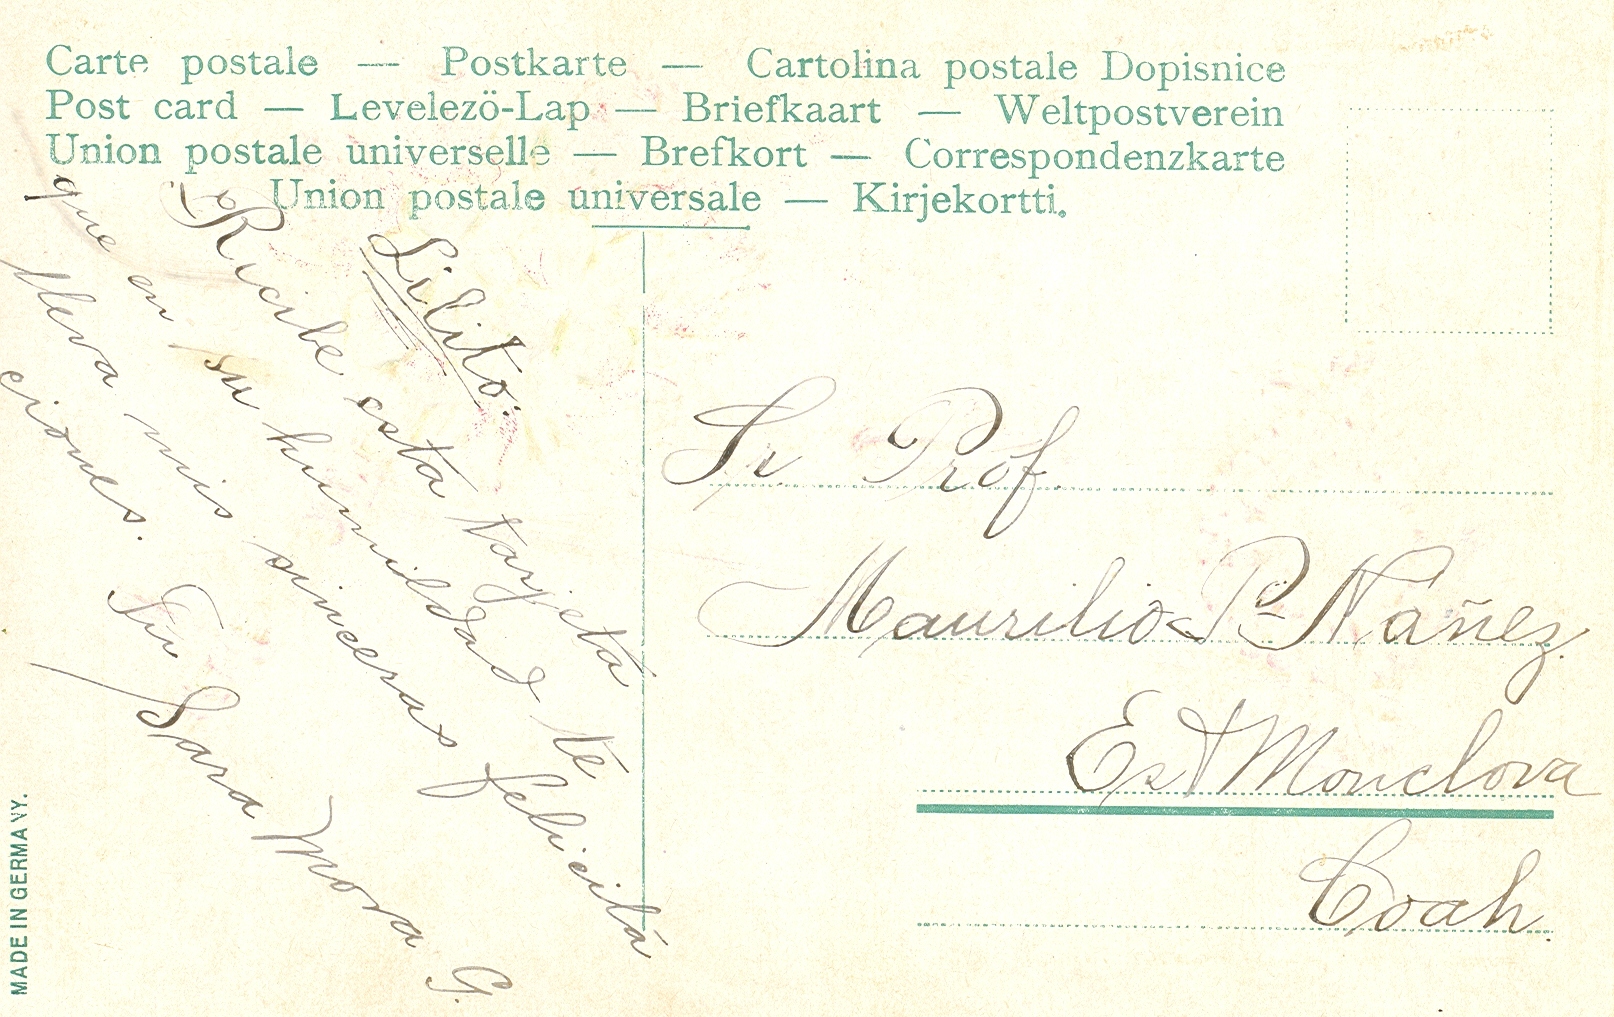 Carte postale — Postkarte — Cartolina postale Dopisnice
Post card — Levelezö-Lap — Briefkaart — Weltpostverein
Union postale universelle — Brefkort — Correspondenzkarte
Union postale universale — Kirjekortti.
Lilito:
Recibe esta tarjeta
que en su humildad te
lleva mis sinceras felicitá
ciones. Tu
Sara Mora G.
Sr. Prof.
Maurilio P. Náñez
Est Monclova
Coah.
MADE IN GERMANY.